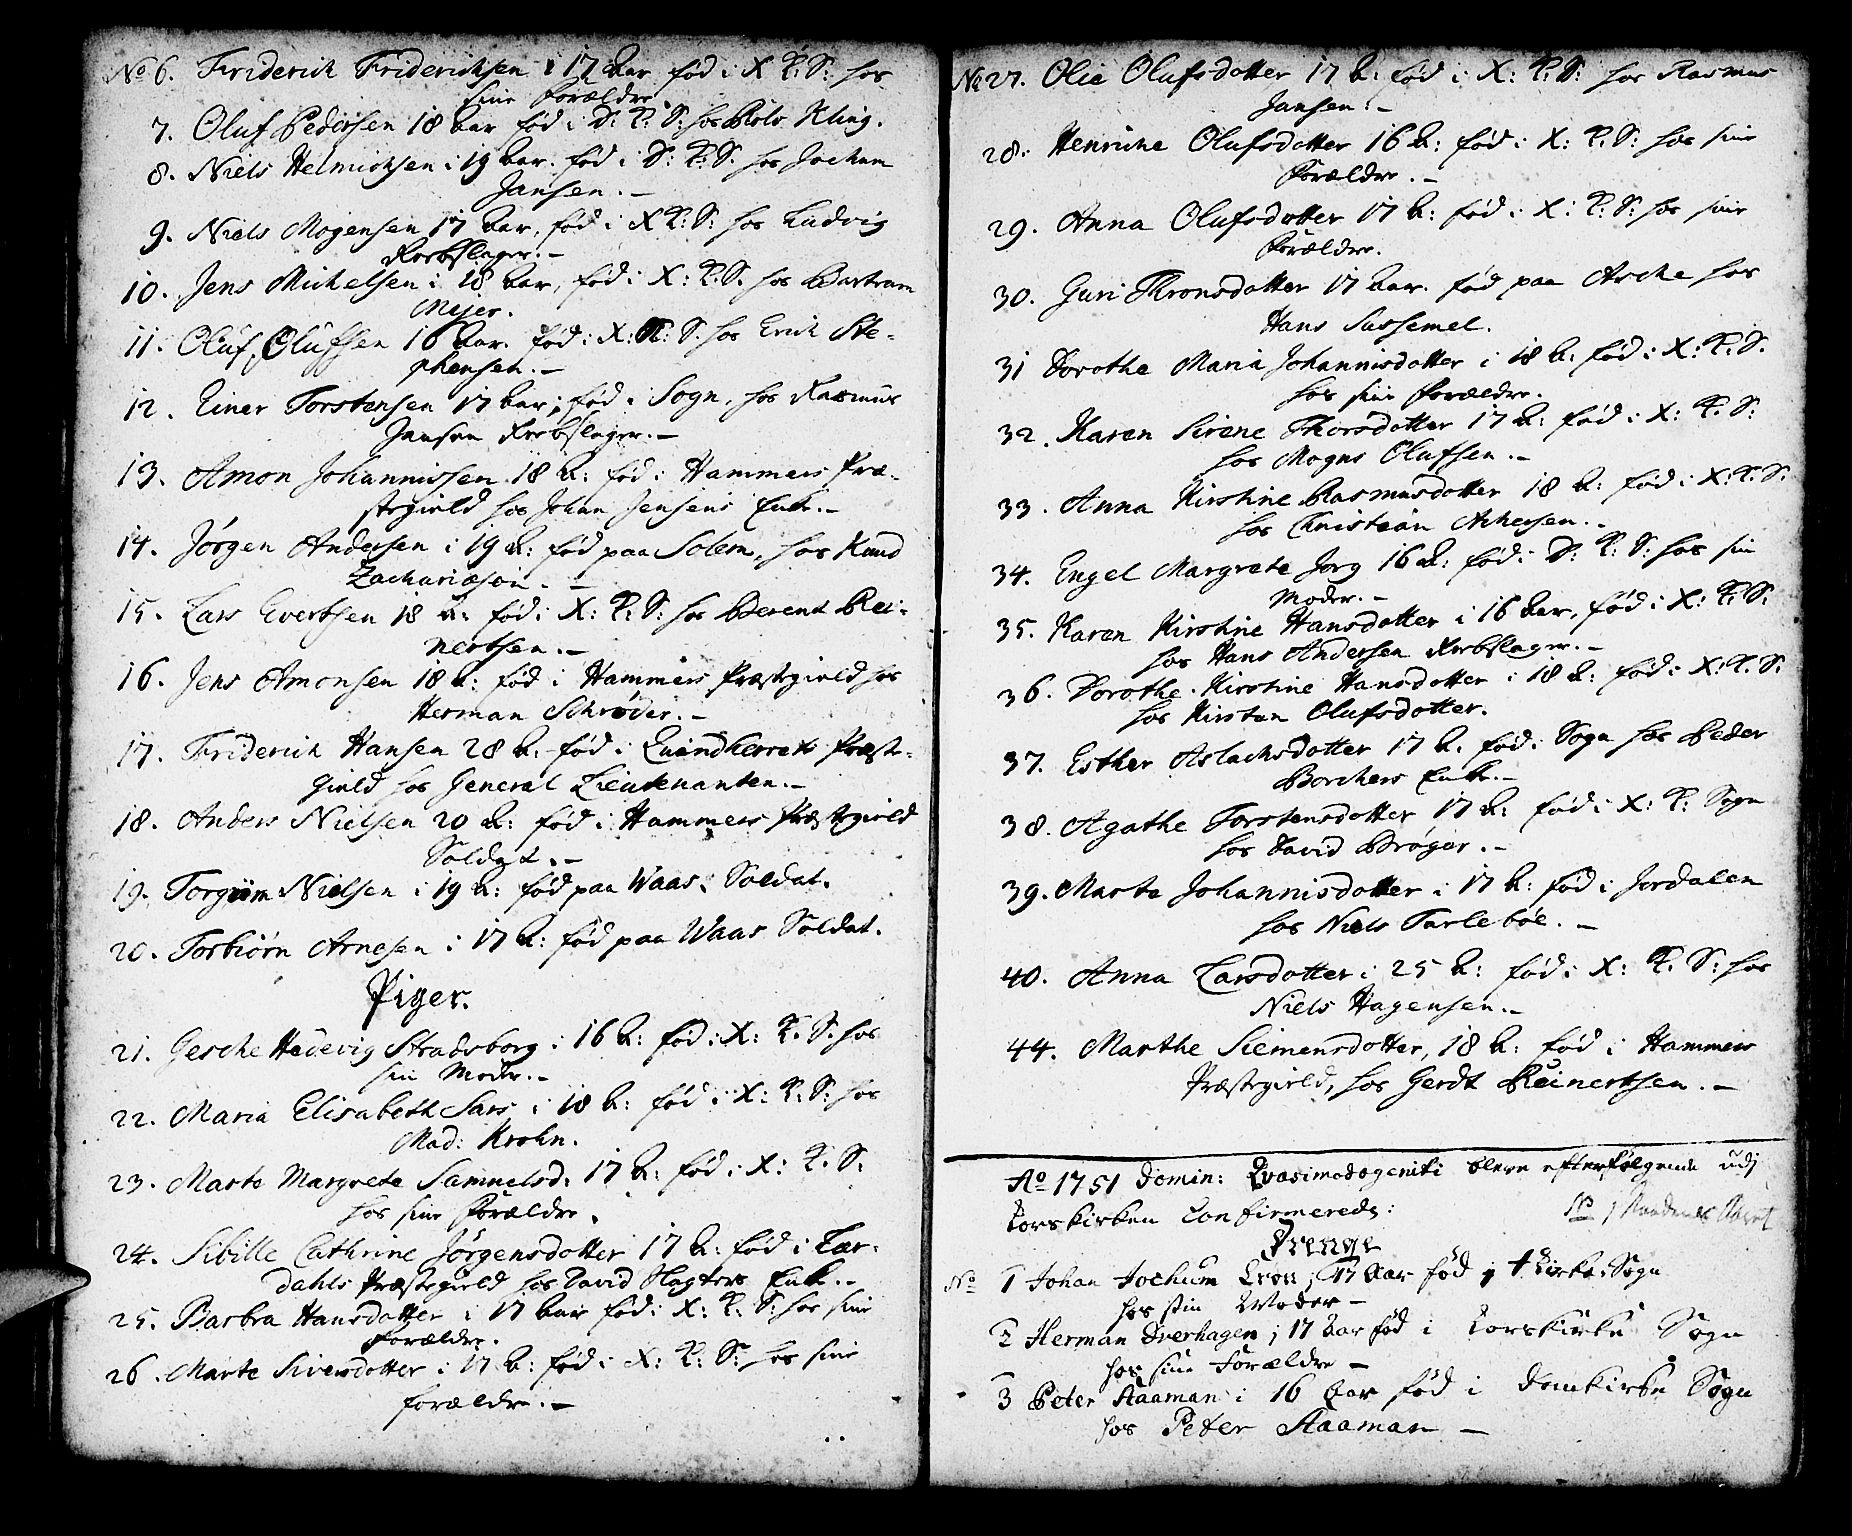 No 6. Friderich Friderichsen i 17 Aar fød i X K: S: hos
sine Forældre.
7. Oluf Pedersen 18 Aar fød i D: K: S: hos Rolv Kling.
8. Niels Helmichsen i 19 Aar. fød i D: K: S. hos Jochum
Jansen. –
9. Niels Mogensen 17 Aar, fød i X K: S: hos Ludvig
Reebslager. –
10. Jens Michelsen i 18 Aar, fød i X: K. S. hos Bartram
Mejer.
11. Oluf Olufsen 16 Aar. fød i X: K: S. hos Erich Ste-
phensen. –
12. Einer Torstensen 17 Aar; fød i Sogn, hos Rasmus
Jansen Reebslager. –
13. Amon Johannissen 18 A: fød i Hammers Præ-
stegield hos Johan Jensens Enke. –
14. Jørgen Andersen i 19 A: fød paa Solem, hos Knud
Zachariæsøn. –
15. Lars Evertsen 18 A: fød i X: K: S: hos Berent Rei-
nertsen. –
16. Jens Amonsen 18 A: fød i Hammers Præstegield hos
Herman Schrøder. –
17. Friderich Hansen 28 A: fød i Qvindherrets Præste-
gield hos General Lieutenanten. –
18. Anders Nielsen 20 A: fød i Hammers Præstegield
Soldat. –
19. Torgrim Nielsen i 19 A: fød paa Waas. Soldat.
20. Torbiørn Arnesen i 17 A: fød paa Waas Soldat.
Piger.
21. Gesche Hedevig Stradsborg i 16 A: fød i X: K: S: hos
sin Moder. –
22. Maria Elisabeth Sars i 18 A: fød i X: K: S: hos
Mad: Krohn.
23. Marte Margrete Samuelsd: 17 A: fød i X: K. S:
hos sine Forældre.
24. Sibille Cathrine Jørgensdotter 17 A: fød i Lær-
dahls Præstegield hos David Enke. –
25. Barbra Hansdotter i 17 Aar fød i X: K: S: hos sine
Forældre.
26. Marte Siversdotter i 17 A: fød i X: K: S: hos sine
forældre. –
No 27. Olie Olufsdotter 17 A: fød i X: K: S: hos Rasmus
Jansen. –
28. Henriche Olufsdotter 16 A: fød i X: K: S: hos sine
Forældre. –
29. Anna Olufsdotter 17 A: fød i X: K: S: hos sine
Forældre.
30. Guri Thronsdotter 17 Aar. fød paa Asche hos
Hans Sussemel.
31 Dorothe Maria Johannisdotter i 18 A: fød i X: K: S.
hos sine Forældre.
32. Karen Sirene Thorsdotter 17 A: fød i X: K. S:
hos Mogns Olufsen. –
33. Anna Kirstine Rasmusdotter 18 A: fød i X: K: S:
hos Christian Achersen. –
34. Engel Margrete Jorg 16 A: fød i D: K: S: hos sin
Moder. –
35. Karen Kirstine Hansdotter i 16 Aar, fød i X: K: S:
hos Hans Andersen Reebslager. –
36. Dorothe Kirstine Hansdotter i 18 A: fød i X: K: S:
hos Kirsten Olufsdotter.
37. Esther Aslachsdotter 17 A. fød i Sogn hos Peder
Borchers Enke. –
38. Agathe Torstensdotter 17 A: fød i X: K: Sogn
hos David Brøger. –
39. Marta Johannisdotter i 17 A: fød i Jordalen
hos Niels Tarlebøe. –
40. Anna Larsdotter i 25 A: fød i X: K: S: hos
Niels Hagensen. –
44. Marthe Siemensdotter, 18 A: fød i Hammers
Præstegield, hos Gerdt Reinertsen. –
Ao 1751 Domin: Qvasimodogeniti bleve efterfølgende udj
Korskirken Confirmerede:
Drenge
No 1 Johan Jochum Cron j 17 Aar fød j † Kirke Sogn
hos sin Moder –
2 Herman Overhagen j 17 Aar fød i Korskirke Sogn
hos sine Forældre –
3 Peter Aaaman i 16 Aar fød i Domkirke Sogn
hos Peter Aaaman –